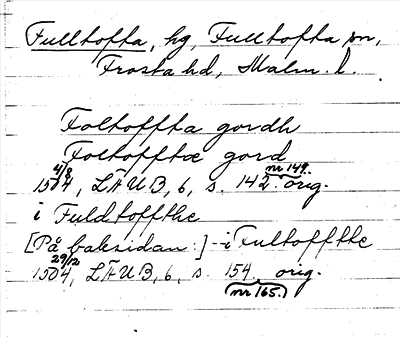 Fulltofta, hg, Fulltofta sn,
Frosta hd, Malm. l.
Foltoffta gordh
Foltofftæ gord
4/8 nr 149.
1504, LÄUB, 6, s. 142. orig.
i Fuldtoffthe
[På baksidan:] - i Fultoffthe
29/12
1504, LÄUB, 6, s. 154. orig.
(nr 165.)